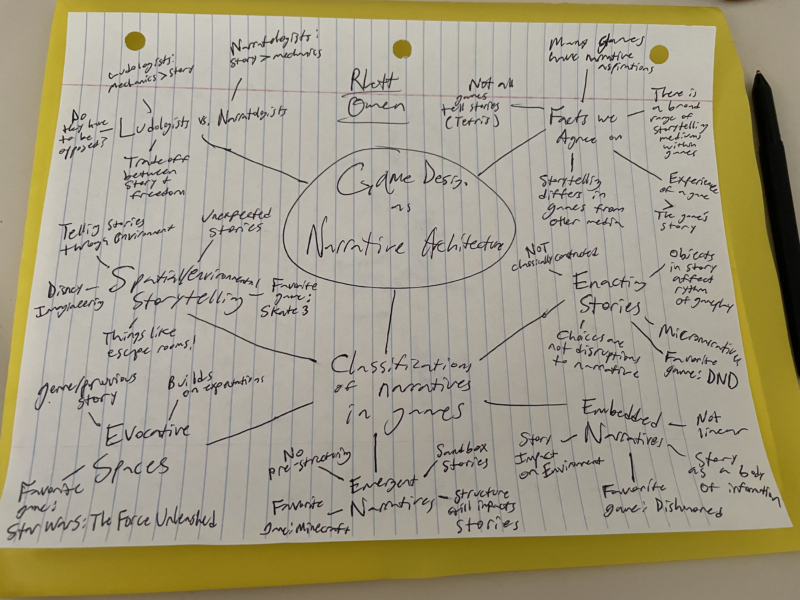 Ludologists:
Mechanics > story
Narratologists:
Story > mechanics
Do
they have
to be
opposed?
Ludologists vs. Narratologists
Trade off
between
Story +
freedom
Rhett
Omen
Many games
have narrative
aspirations
Not all
games
tell stories
(Tetris)
Facts we
Agree on
There is
a broad
range of
storytelling
mediums
within
games
Storytelling
differs in
games from
other media
Experience
of a game
>
The game's
story
Game Design
as
Narrative Architecture
Telling Stories
through Environment
Unexpected
Stories
Disney
Imagineering
Spatial/environmental
Storytelling
Favorite
game:
Skate 3
Things like
escape rooms!
NOT
classically constructed
Enacting
Stories
Objects
in story
affect
rythm
of gameplay
Choices are
not disruptions
to narrative
Micronarratives
Favorite
game: DND
Classifizations
of narratives
in games
genre/prwvious
story
Builds
on expectations
Evocative
Spaces
Favorite
game:
Star Wars: The Force Unleashed
No
pre-structuring
Sandbox
Stories
Emergent
Narratives
Favorite
Game: Minecraft
Structure
still impacts
stories
Embedded
Narratives
Not
linear
Story
Impact
on Environment
Story
as a body
of information
Favorite
game: Dishonored